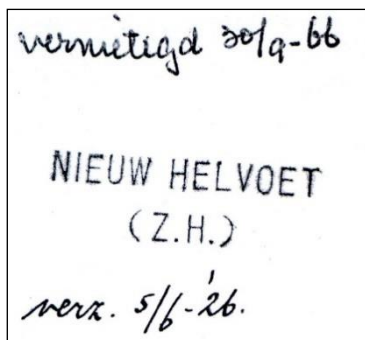 vernietigd 30/9-66
NIEUW HELVOET
(Z.H.)
verz. 5/6-'26.